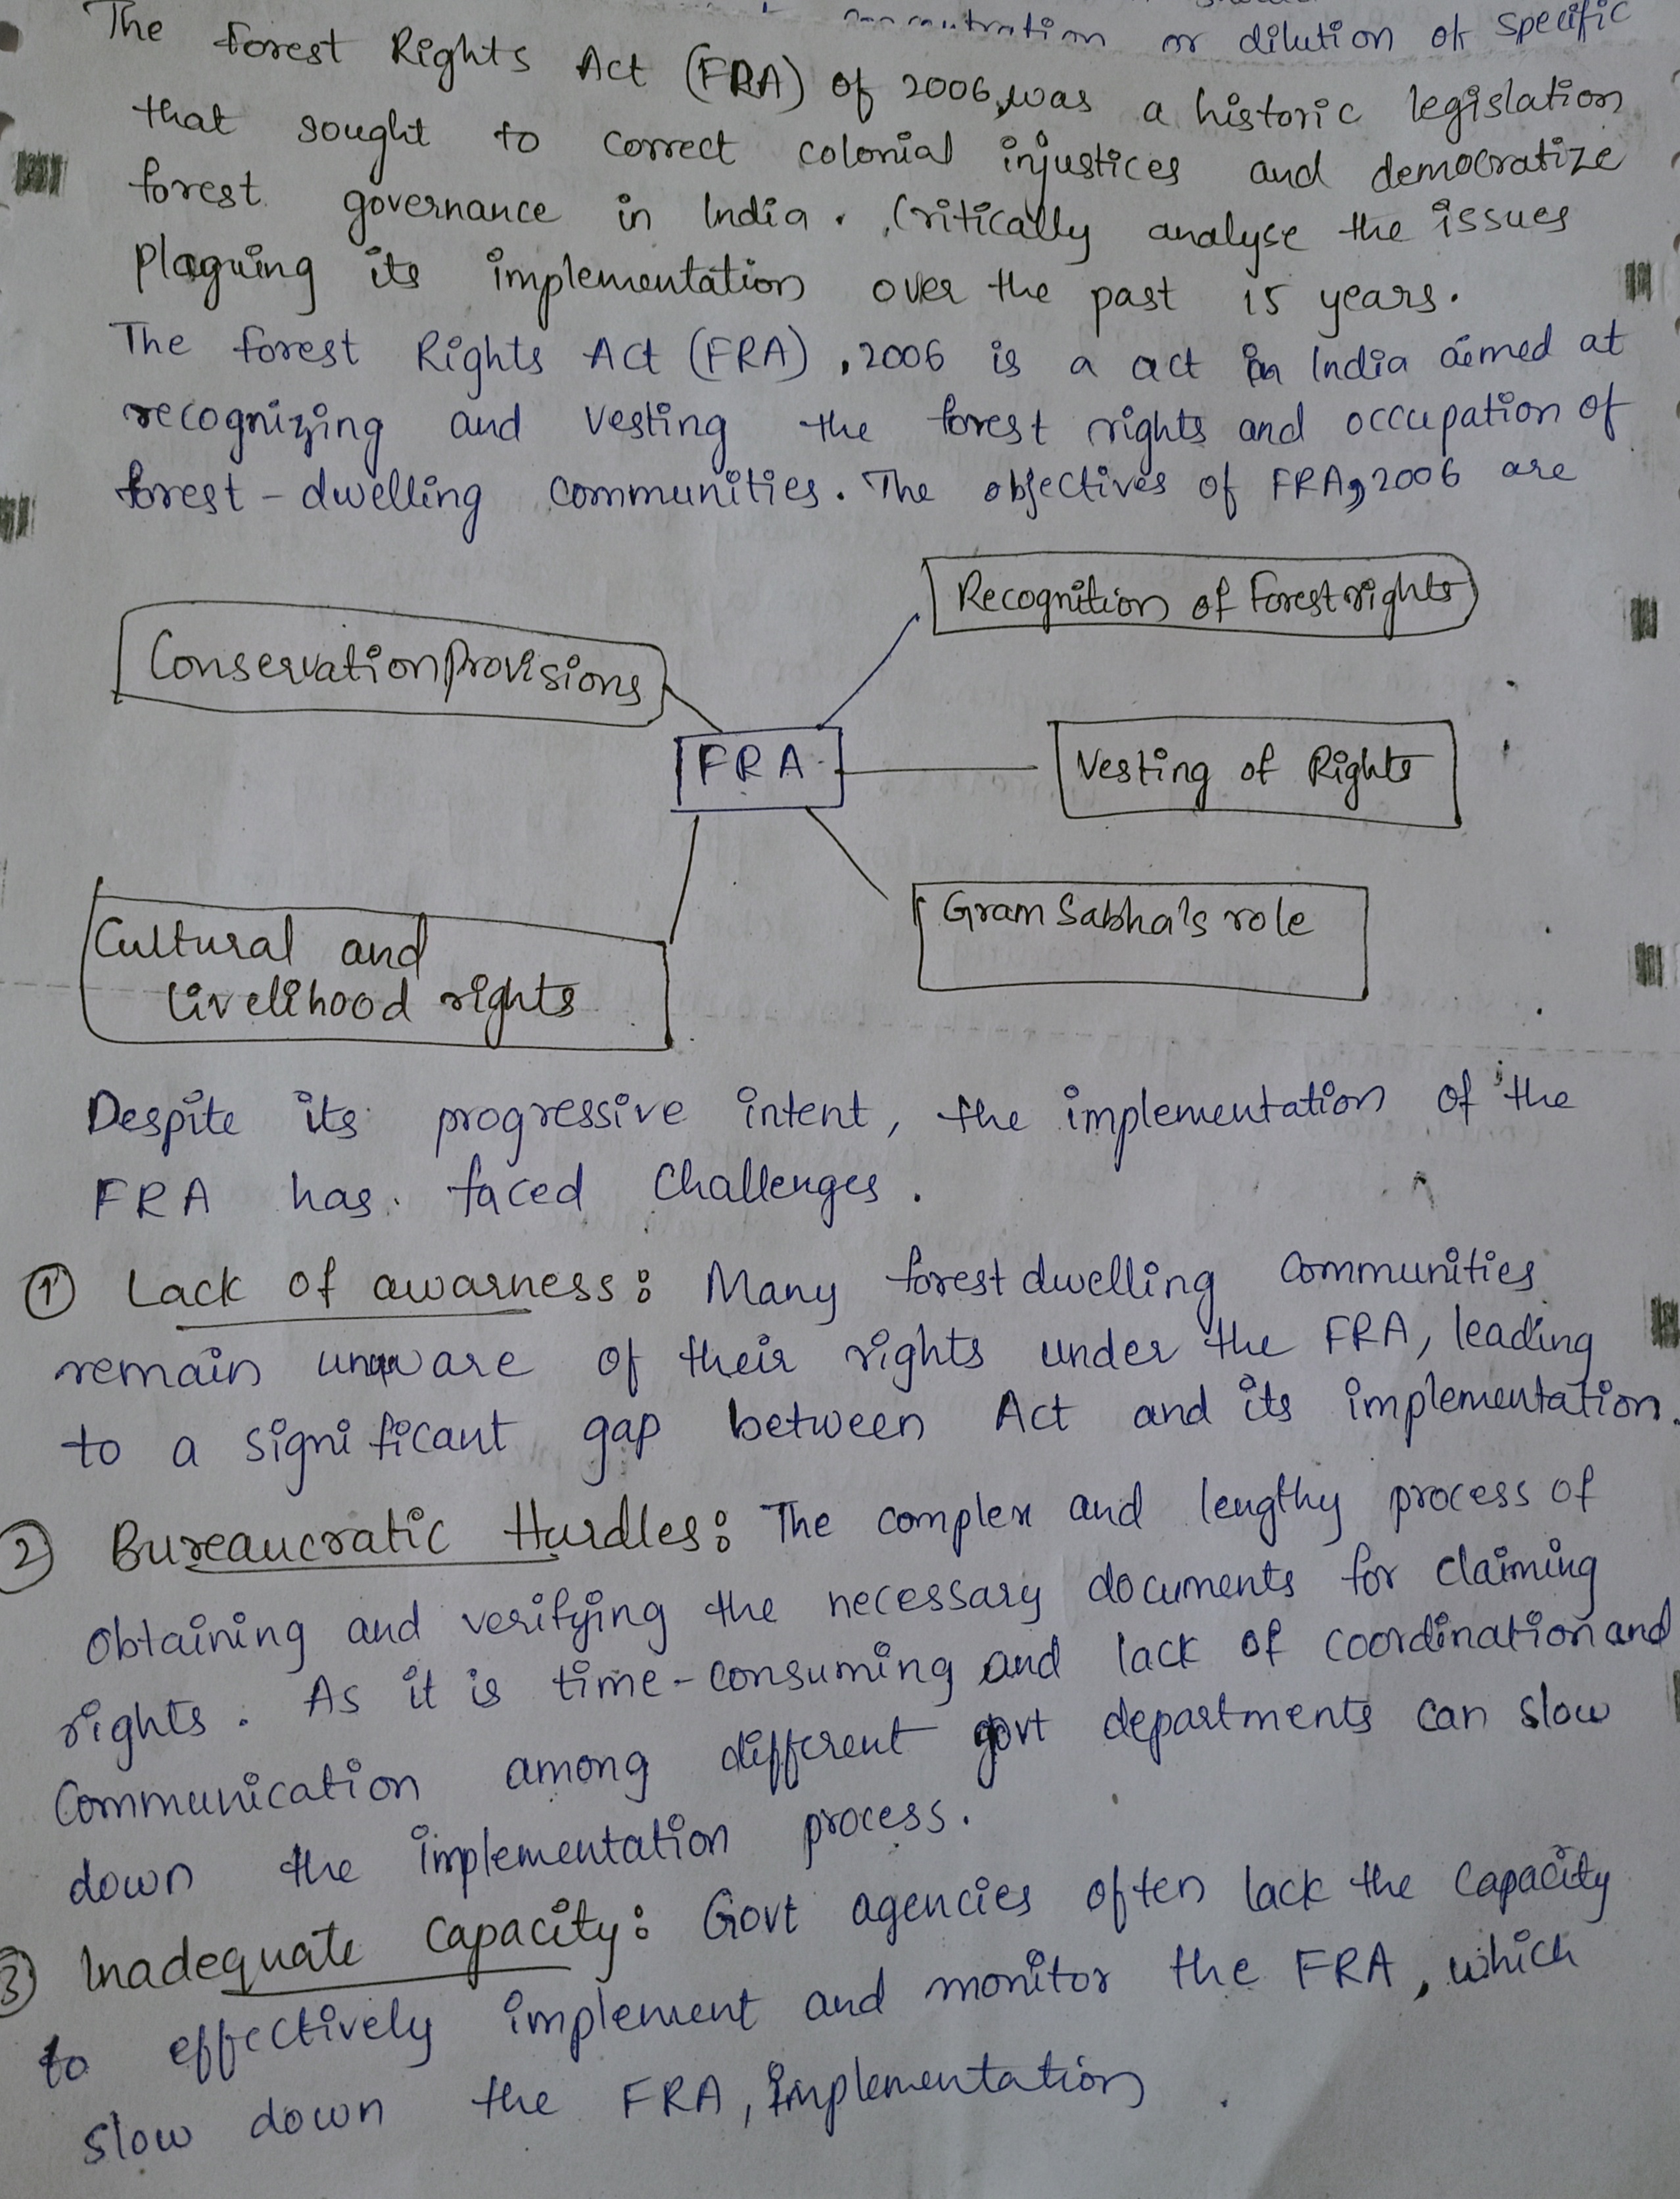 or dilution of specific
The Forest Rights Act (FRA) of 2006, was a historic legislation
that sought to correct colonial injustices and democratize
forest governance in India. Critically analyse the issues
Plaguing its implementation over the past 15 years.
The forest Rights Act (FRA), 2006 is a act in India aimed at
recognizing and vesting the forest rights and occupation of
forest-dwelling communities. The objectives of FRA, 2006 are
Recognition of Forest rights
Conservation Provisions
FRA
Vesting of Rights
Gram Sabha's role
Cultural and
livelihood rights
Despite its progressive intent, the implementation of the
FRA has faced challenges.
① Lack of awarness: Many forest dwelling communities
remain unaware of their rights under the FRA, leading
to a significant gap between Act and its implementation.
② Bureaucratic Hurdles: The complex and lengthy process of
obtaining and verifying the necessary documents for claiming
rights. As it is time-consuming and lack of coordination and
Communication among different govt departments can slow
down the implementation process.
③ Inadequate capacity: Govt agencies often lack the capacity
to effectively implement and monitor the FRA, which
slow down the FRA, implementation.